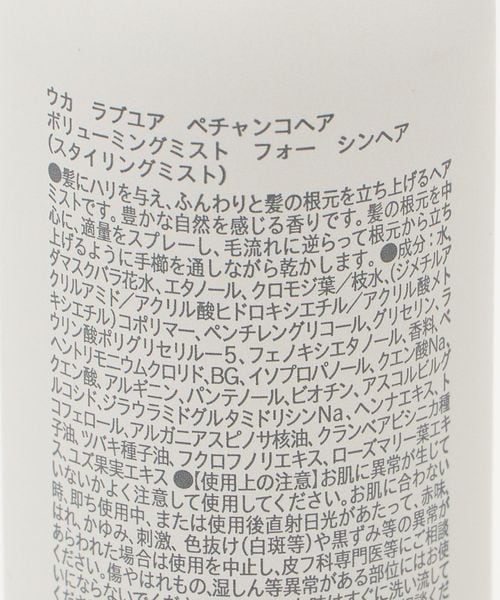 ウカ ラブユア ペチャンコヘア
ボリューミングミスト フォー シンヘア
(スタイリングミスト)
●髪にハリを与え、ふんわりと髪の根元を立ち上げるヘア
ミストです。豊かな自然を感じる香りです。髪の根元を中
心に、適量をスプレーし、毛流れに逆らって根元から立ち
上げるように手櫛を通しながら乾かします。●成分：水、
ダマスクバラ花水、エタノール、クロモジ葉／枝水、(ジメチルア
クリルアミド／アクリル酸ヒドロキシエチル／アクリル酸メト
キシエチル)コポリマー、ペンチレングリコール、グリセリン、ラ
ウリン酸ポリグリセリル-5、フェノキシエタノール、香料、ベ
ヘントリモニウムクロリド、BG、イソプロパノール、クエン酸Na、
クエン酸、アルギニン、パンテノール、ビオチン、アスコルビルグ
ルコシド、ジラウラミドグルタミドリシンNa、ヘンナエキス、ト
コフェロール、アルガニアスピノサ核油、クランベアビシニカ種
子油、ツバキ種子油、フクロフノリエキス、ローズマリー葉エキ
ス、ユズ果実エキス ●【使用上の注意】お肌に異常が生じて
いないかよく注意して使用してください。お肌に合わない
時、即ち使用中、または使用後直射日光があたって、赤味、
はれ、かゆみ、刺激、色抜け(白斑等)や黒ずみ等の異常が
あらわれた場合は使用を中止し、皮フ科専門医等にご相談
ください。傷やはれもの、湿しん等異常がある部位にはお使
いにならないでください